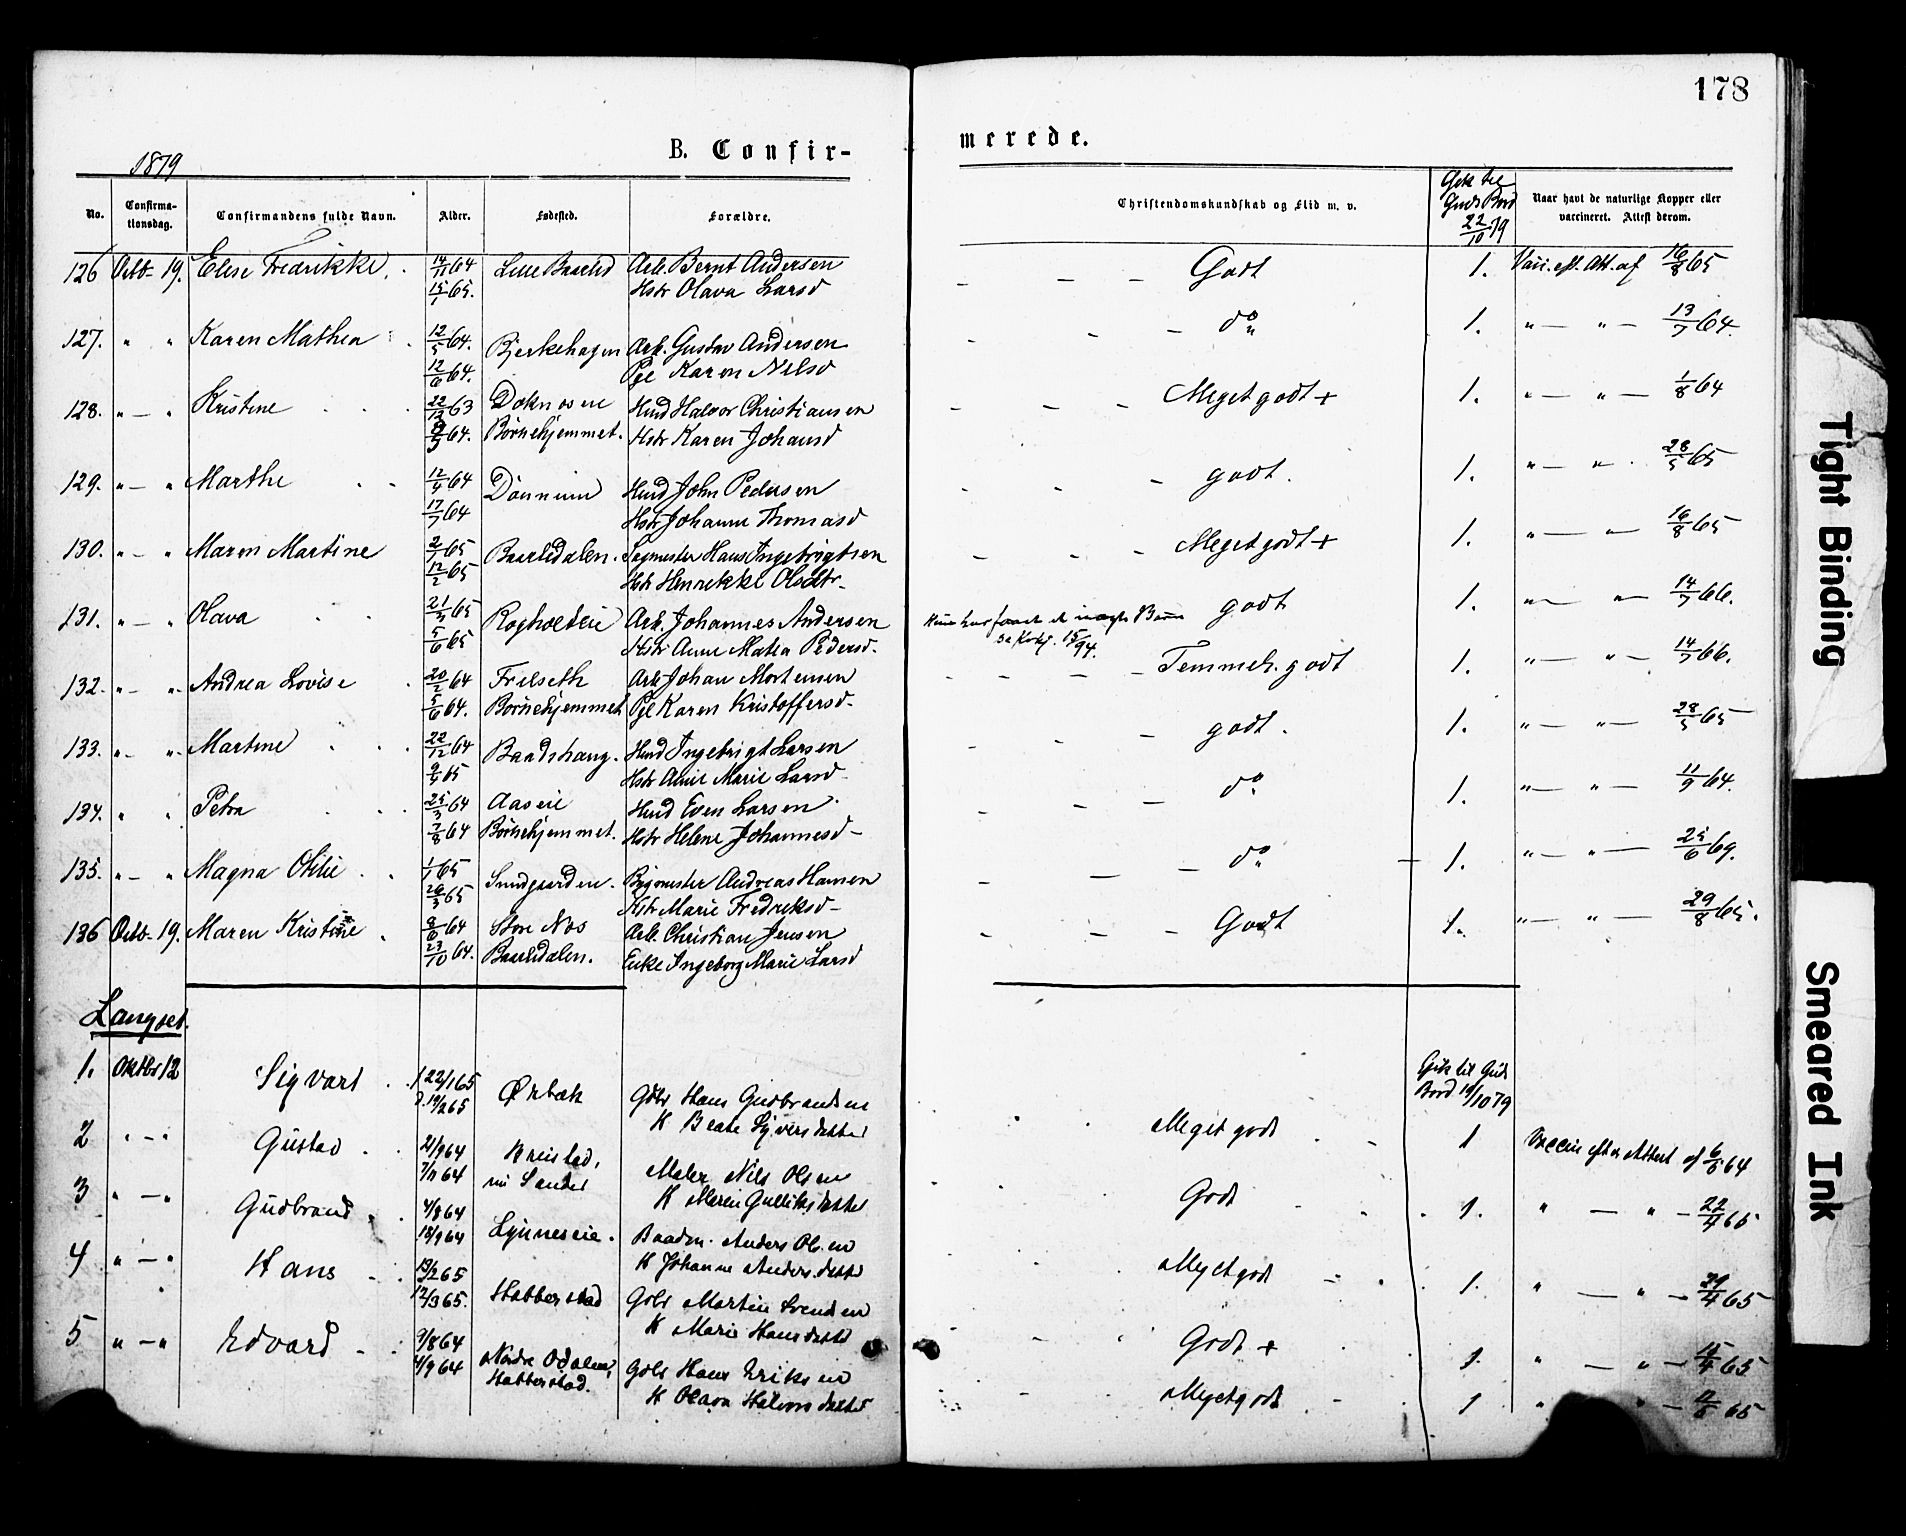 178
B. Confir-
merede.
1879
No. Confirma-tionsdag. Confirmandens fulde Navn. Alder. Fødested. Forældre. Christendomskundskab og Flid m. v. Gik til Guds Bord 22/10 79 Naar havt de naturlige Kopper eller vaccineret. Attest derom.
126 Octb. 19. Elise Fredrikke. 14/11 64 Lille Arb. Bernt Andersen Godt 1. Vacc. eft. Att. af 16/8 65
15/1 65. Hstr Olava Larsd
127. " " Karen Mathea 12/5 64. Bjerkehagen Arb. Gustav Andersen do 1. " — " — 13/7 64.
12/6 64. Pge Karen Nilsd
128. " — " Kristine 22/12 63 Hmd Halvor Christiansen Meget godt + 1. " — " — 1/8 64
64. Børnehjemmet. Hstr Karen Johansd
129. " — " Marthe 12/4 64 Hmd John Pedersen godt. 1. " — " 28/5 65
17/7 64 Hstr Johanne Thomasd
130. " — " Maren Martine 2/1 65 Sagmester Hans Ingebrigtsen Meget godt + 1. " — " — 16/8 65
12/2 65 Hstr Henrikke Olsdtr.
131. " — " Olava 21/3 65 Arb. Johannes Andersen godt 1. " — " — 14/7 66.
5/6 65 Hstr Anne Mathea Pedersd. 15/ 94.
132. " — " Andrea Lovise 20/2 64 Frilseth Arb Johan Mortensen Temmel. godt 1. " — " — 14/7 66.
5/6 64. Børnehjemmet Pge Karen Kristoffersd.
133. " — " Martine 22/12 64 Baadshaug. Hmd Ingebrigt Larsen godt. 1. " — " — 28/5 65
65 Hstr Anne Marie Larsd.
134. " " Petra 25/3 64 Aaseie Hmd Even Larsen do 1. " — " — 11/9 64.
7/8 64 Børnehjemmet. Hstr Helene Johannesd.
135. " — " Magna Otilie 1/1 65 Sundgaarden. Bygmester Andreas Hansen do 1. " — " — 25/6 69.
26/3 65 Hstr Marie Fredriksd.
136 Octb. 19. Maren Kristine 64 Store Nos Arb. Christian Jensen Godt 1. " — " — 29/8 65.
23/10 64. Enke Ingeborg Marie Larsd
Langset.
Gik til Guds Bord 19/10 79
1. Oktbr 12 Sigvart 22/1 65 Ørbæk Gdbr Hans Gudbrandsen Meget godt 1 Vaccin efter Attest af 6/6 64
19/2 65 K Beate Syversdatter
2 " — " Gustav 21/9 64 Maler Nils Olsen Godt 1. " — " — 22/4 65
7/11 64 K Maren Gulliksdatter
3 " — " Gudbrand 4/8 64 Lynneseie. Baadm. Anders Olsen Megetgodt 1. " — " — 29/4 65
18/9 64 K Johanne Andersdatter
4 " — " Hans 13/2 65 Habberstad Gdbr Martin Svendsen Godt + 1. " — " — 15/4 65
12/3 65. K Marie Hansdatter
5 " — " Edvard 9/8 64 Nordre Odalen, Gdbr Hans Eriksen Megetgodt 1 " " — 65
4/9 64 Habberstad. K Olava Halvorsdatter
Tight Binding
Smeared Ink